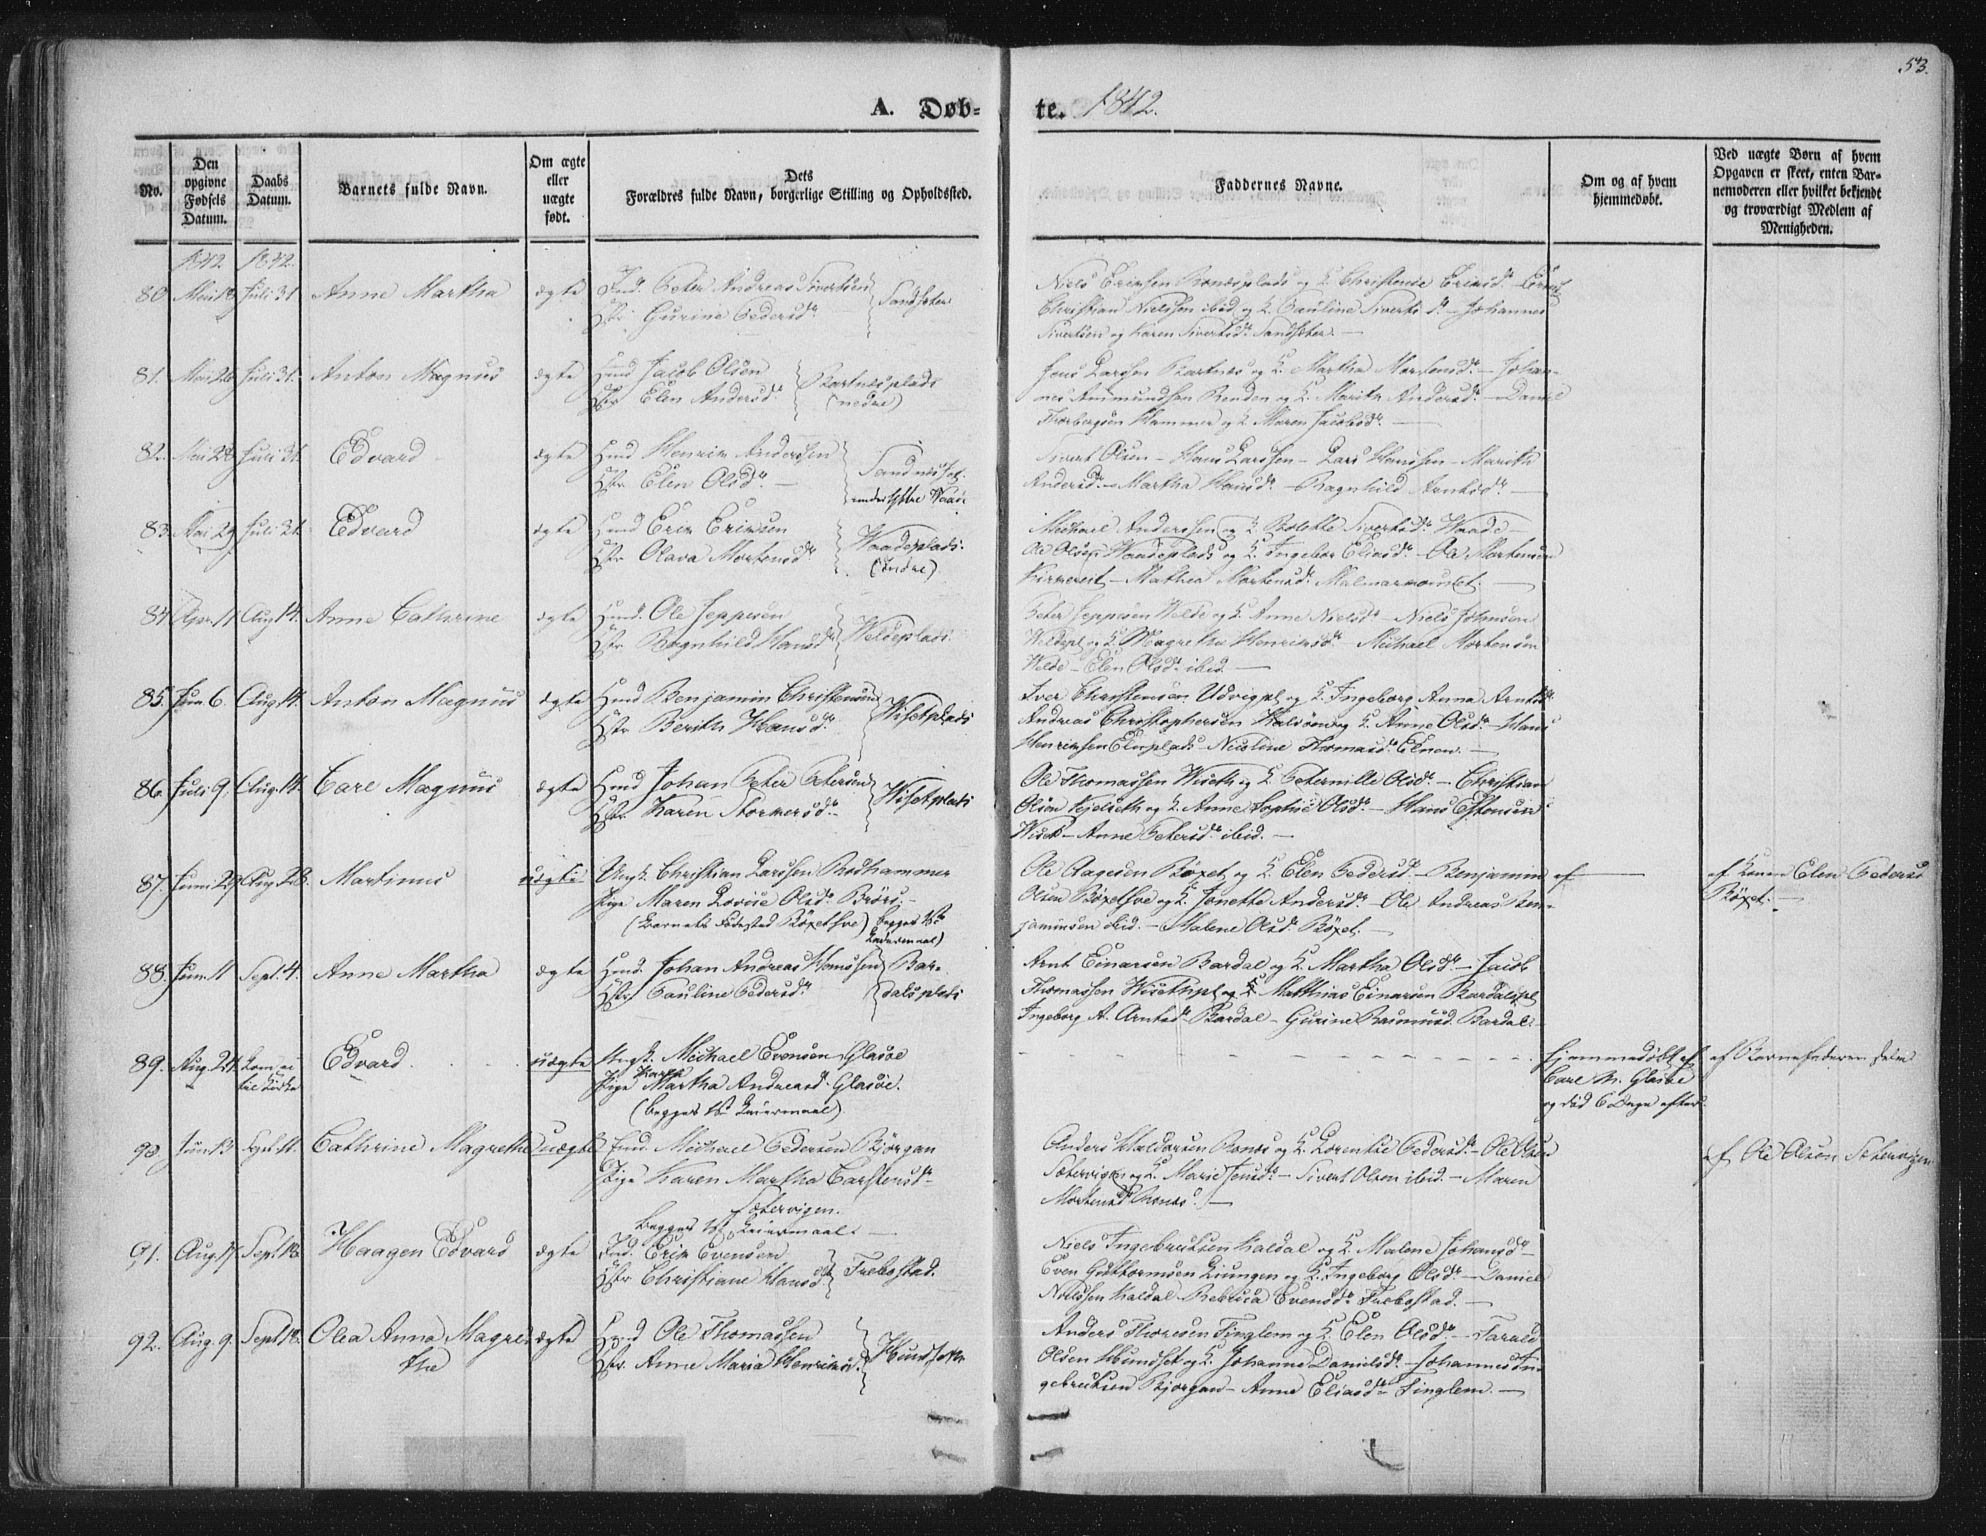 53.
A. Døb-
te. 1842.
No.
Den
opgivne
Fødsels
Datum.
Daabs
Datum.
Barnets fulde Navn.
Om ægte
eller
uægte
født.
Dets
Forældres fulde Navn, borgerlige Stilling og Opholdssted.
Faddernes Navne.
Om og af hvem
hjemmedøbt.
Ved uægte Born af hvem
Opgaven er skeet, enten Bar-
nemoderen eller hvilket bekjendt
og troværdigt Medlem af
Menigheden.
1842. 1842.
80. Juli 31 Anne Martha ægte Ind. Peter Andreas Sivertsen
Gurine Pedersdr
Sandseter
Niels Eriksen og K. Christense Eriksdr
Christian Nielssen ibid. og K. Pauline Sivertsdr - Johannes
Sivertsen og Karen Sivertsdr Sandseter.
81. Mai 26 Juli 31. Anton Magnus ægte Huusd Jacob Olsen
Hstr Elen Andersdr
Bartnesplads
(nedre)
Jens Larssen Bartnes og K. Martha Mortensdr - Johan-
nes Ammundsen Renden og K. Marith Andersdr - Daniel
Thorbergsen Hammer og K. Maren Jacobsdr
82. Juli 31. Edvard ægte Huusd Henrik Anderssen
Hstr Elen Olsdr
Sandnesset
Sivert Olsen - Hans Larssen - Lars Hanssen - Marith
Andersdr - Martha Hansdr - Ragnhild Arntsdr
83. Mai 29 Juli 31. Edvard ægte Huusd Erik Eriksen
Hstr Olava Mortensdr
Waadeplads
(Indre)
Michael Anderssen og K. Bolette Sivertsdr Waade
Ole Olsen Waadeplads og K. Ingebor Eliasdr - Ole Mortensen
Kirkereit - Mathea Mortensdr
84. Apr. 11 Aug 14. Anne Cathrine ægte Huusd. Ole Jeppesen
Hstr Ragnhild Hansdr
Weldeplads
Peter Jeppesen Welde og K. Anne Nielsdr - Niels Johnsen
Weldepl og K. Magrethe Henriksdr - Michael Mortensen
Welde - Elen Olsdr ibid.
85. Juni 6. Aug 14. Anton Magnus ægte Huusd Benjamin Christensen
Hstr Berith Hansdr
Wisetplads
Iver Christensen Udvigpl og K. Ingeborg Anna Arntsdr
Andreas Christophersen Kalsøen og K. Anne Olsdr - Hans
Henriksen Elnplads - Nicoline Thomasdr Elnen.
86. Juli 9. Aug. 14. Carl Magnus ægte Huusd Johan Peter Petersen
Hstr Karen Storkersdr
Wisetplads
Ole Thomassen Wiseth og K. Peternille Olsdr - Christian
Olsen Kjelseth og K. Anne Sophie Olsdr - Hans Estensen
Wiset - Anne Petersdr ibid.
87. Juni 29 Aug 28. Martinus uægte Ungk. Christian Larssen Rødhammer
Pige Maren Lovise Olsdr Brørs.
(Barnets Fødested Bøxethve) begges 1ste
Leiermaal)
Ole Aagesen Bøxet og K. Elen Pedersdr - Benjamin
Olsen Bøxethve og K. Jonette Andersdr - Ole Andreas Ben-
jaminsen ibid. - Malene Olsdr Bøxet.
af Konen Elen Pedersd
Bøxet.
88. Juni 11 Sept. 4. Anne Martha ægte Huusd. Johan Andreas Hanssen
Hstr Pauline Pedersdr
Bar-
dalsplads
Arnt Einarsen Bardal og K. Martha Olsdr - Jacob
Thomassen Wisethpl og K. Matthias Einarsen Bardalspl
Ingeborg A. Arntsdr Bardal - Gurine Rasmusd. Bardal.
89. Aug. 24. Kom ei
til Kirke
Edvard uægte Ungk. Michael Evensen Glasøe
Pige Martha Andreasdr Glasøe.
(begges 1ste Leiermaal)
hjemmedøbt af
Carl M. Glasøe
og død 6 Dage efter.
af Barnefaderen selv
90. Juni 3 Sept. 11. Cathrine Magrethe uægte Huusd. Michael Pedersen Bjørgan
Pige Karen Martha Carstensdr
Sætervigen.
begges 1ste Leiermaal.
Anders Haldorsen Ronæs og K. Lorentse Pedersdr - Ole Olsen
Sætervigen og K. Marie Jensdr - Sivert Olsen ibid. - Maren
Mortensdr Ronæs.
af Ole Olsen Setervigen
91. Aug. 17. Sept 18. Haagen Edvard ægte Ind. Erik Evensen
Hstr Christiane Hansdr
Trebostad.
Niels Ingebrigtsen Kaldal og K. Malene Johansdr
Even Guttormsen Liungen og K. Ingeborg Olsdr - Daniel
Nielssen Kaldal - Rebecca Evensdr Trebostad.
92. Aug. 9. Sept 18. Olea Anna Magre-
the
ægte Huusd Ole Thomassen
Hstr. Anne Maria Henriksd.
Hundseter
Anders Thoresen Tinglem og K. Elen Olsdr - Tarald
Olsen Hundset og K. Johanne Danielsdr - Johannes In-
gebrigtsen Bjørgan - Anne Eliasdr Tinglem.